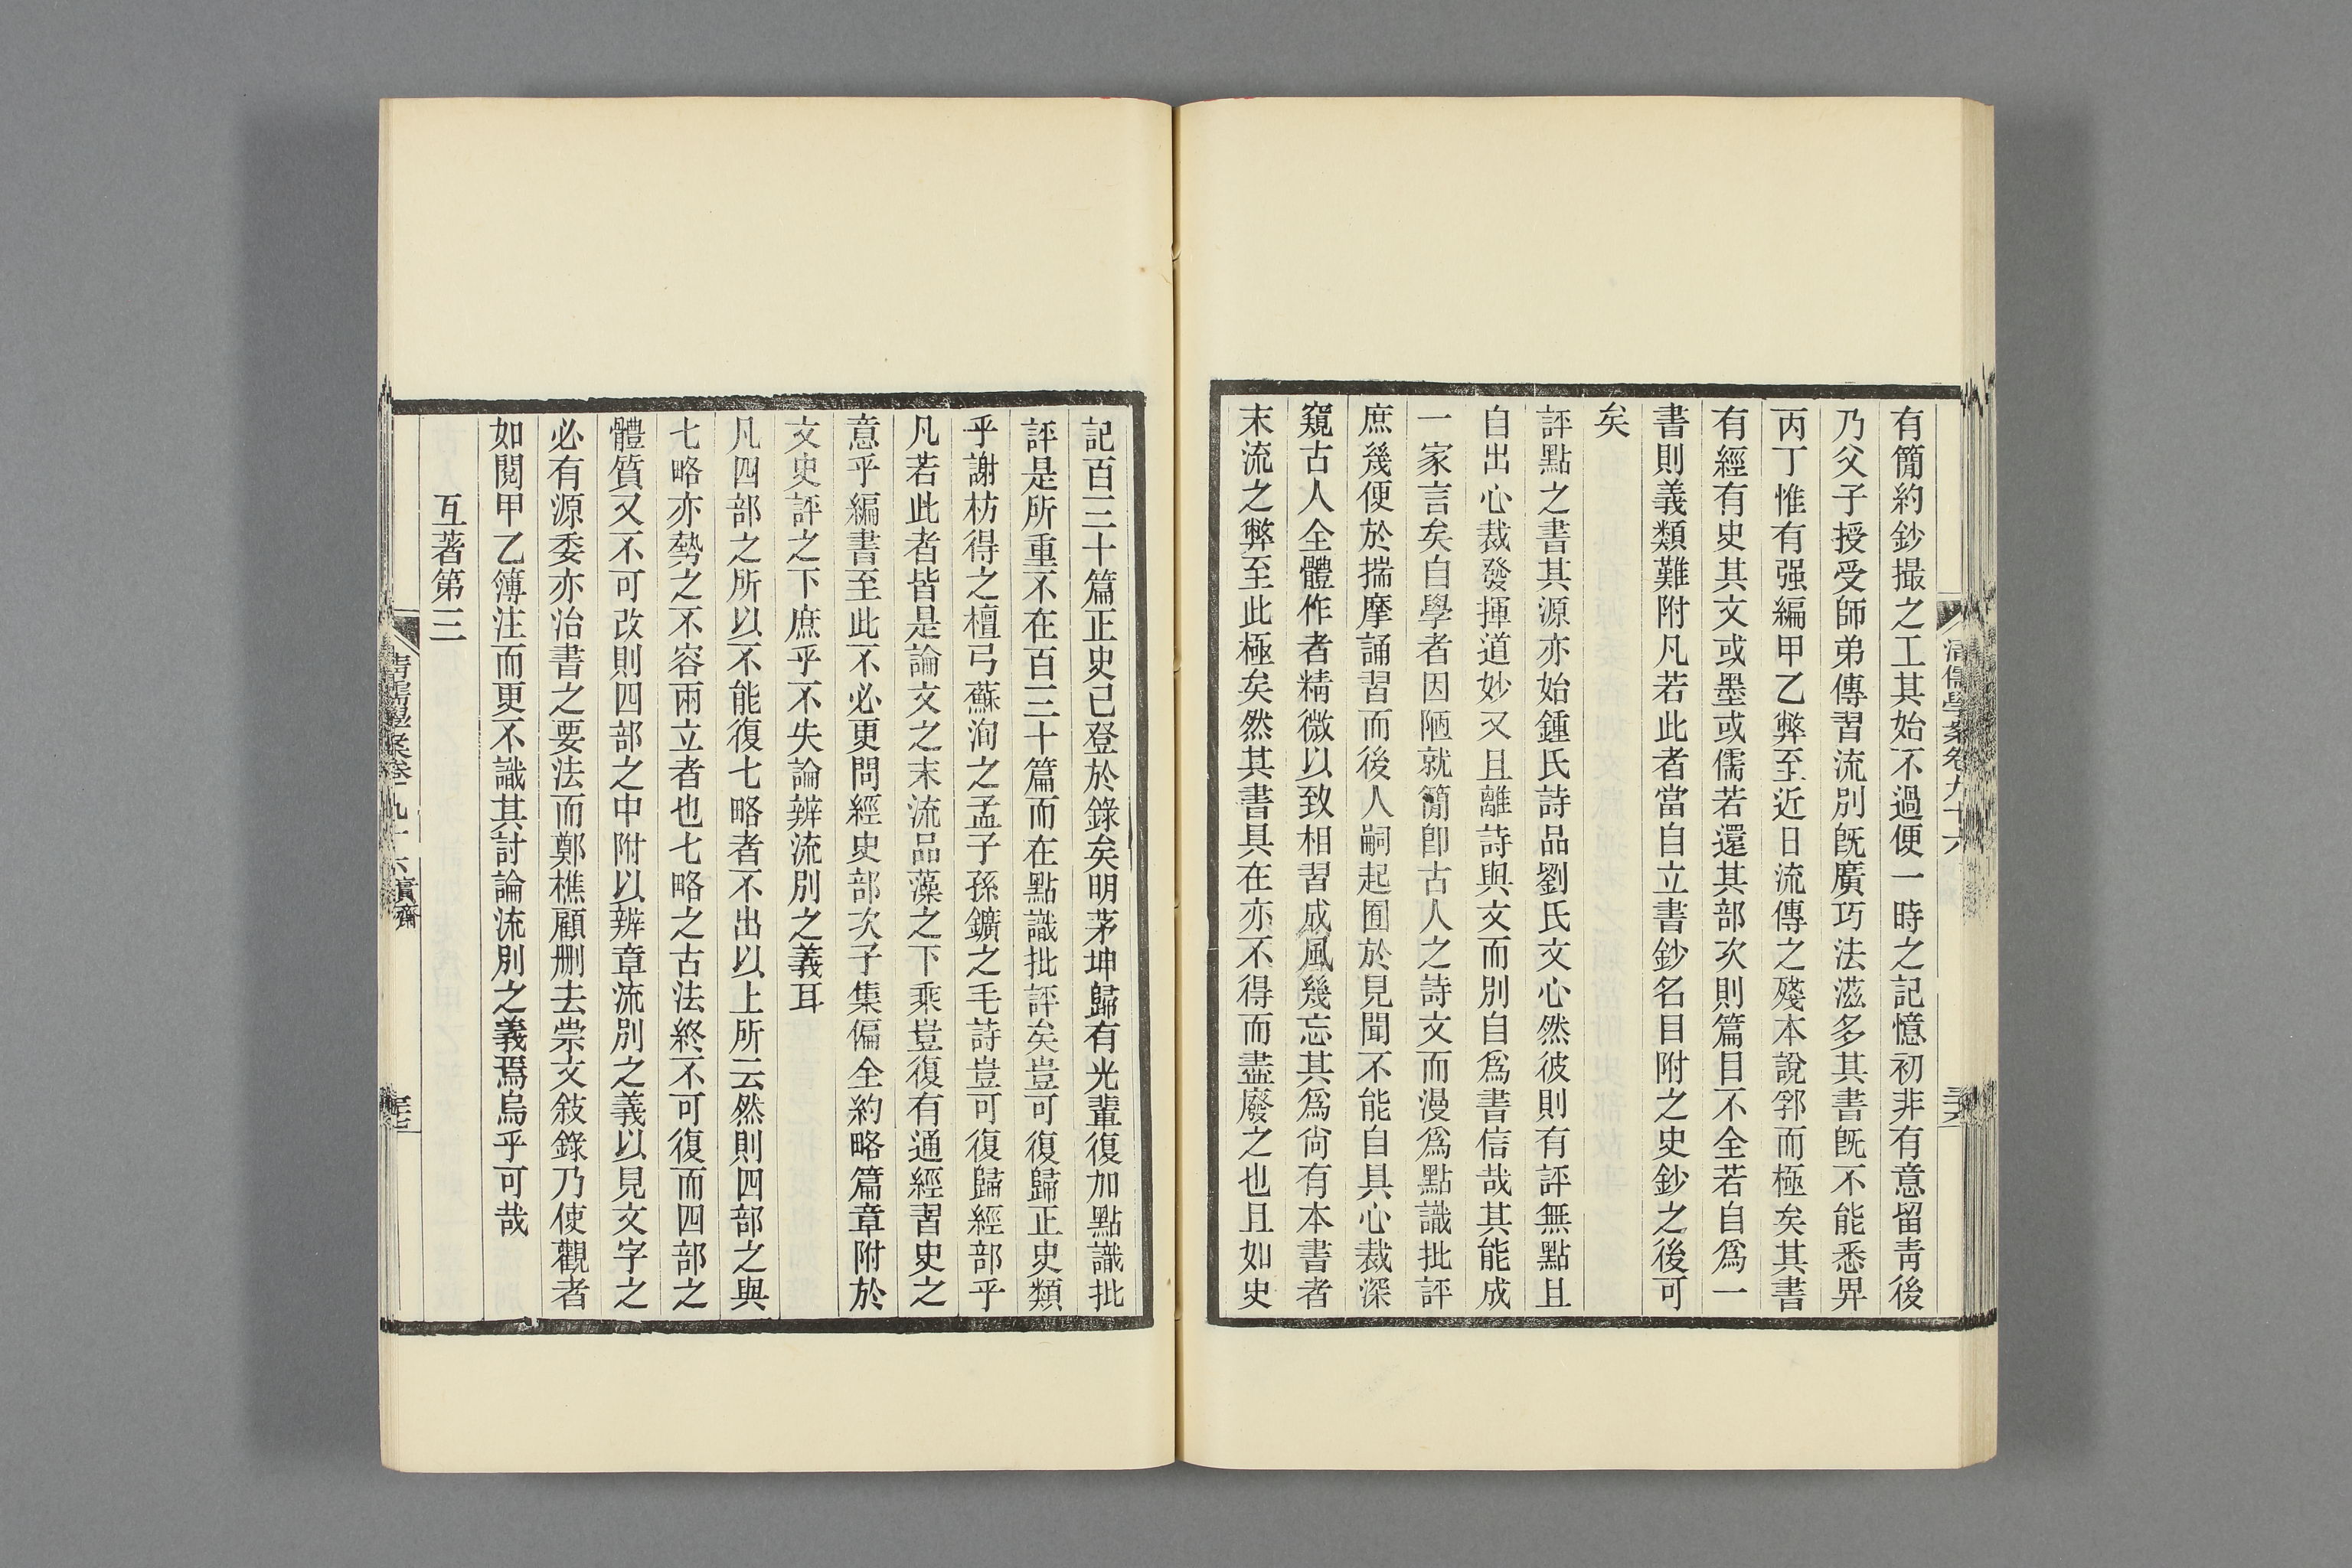 有簡約鈔撮之工其始不過便一時之記憶初非有意留靑後
乃父子授受師弟傳習流別旣廣巧法滋多其書旣不能悉畀
丙丁惟有强編甲乙弊至近日流傳之殘本說郛而極矣其書
有經有史其文或墨或儒若還其部次則篇目不全若自爲一
書則義類難附凡若此者當自立書鈔名目附之史鈔之後可
矣
評點之書其源亦始鍾氏詩品劉氏文心然彼則有評無點且
自出心裁發揮道妙又且離詩與文而別自爲書信哉其能成
一家言矣自學者因陋就簡卽古人之詩文而漫爲點識批評
庶幾便於揣摩誦習而後人嗣起囿於見聞不能自具心裁深
窺古人全體作者精微以致相習成風幾忘其爲尙有本書者
末流之弊至此極矣然其書具在亦不得而盡廢之也且如史
清儒學案卷九十六
三六
記百三十篇正史已登於錄矣明茅坤歸有光輩復加點識批
評是所重不在百三十篇而在點識批評矣豈可復歸正史類
乎謝枋得之檀弓蘇洵之孟子孫鑛之毛詩豈可復歸經部乎
凡若此者皆是論文之末流品藻之下乘豈復有通經習史之
意乎編書至此不必更問經史部次子集偏全約略篇章附於
文史評之下庶乎不失論辨流別之義耳
凡四部之所以不能復七略者不出以上所云然則四部之與
七略亦勢之不容兩立者也七略之古法終不可復而四部之
體質又不可改則四部之中附以辨章流別之義以見文字之
必有源委亦治書之要法而鄭樵顧刪去崇文敍錄乃使觀者
如閱甲乙簿注而更不識其討論流別之義焉烏乎可哉
互著第三
清儒學案卷九十六實齋
三七